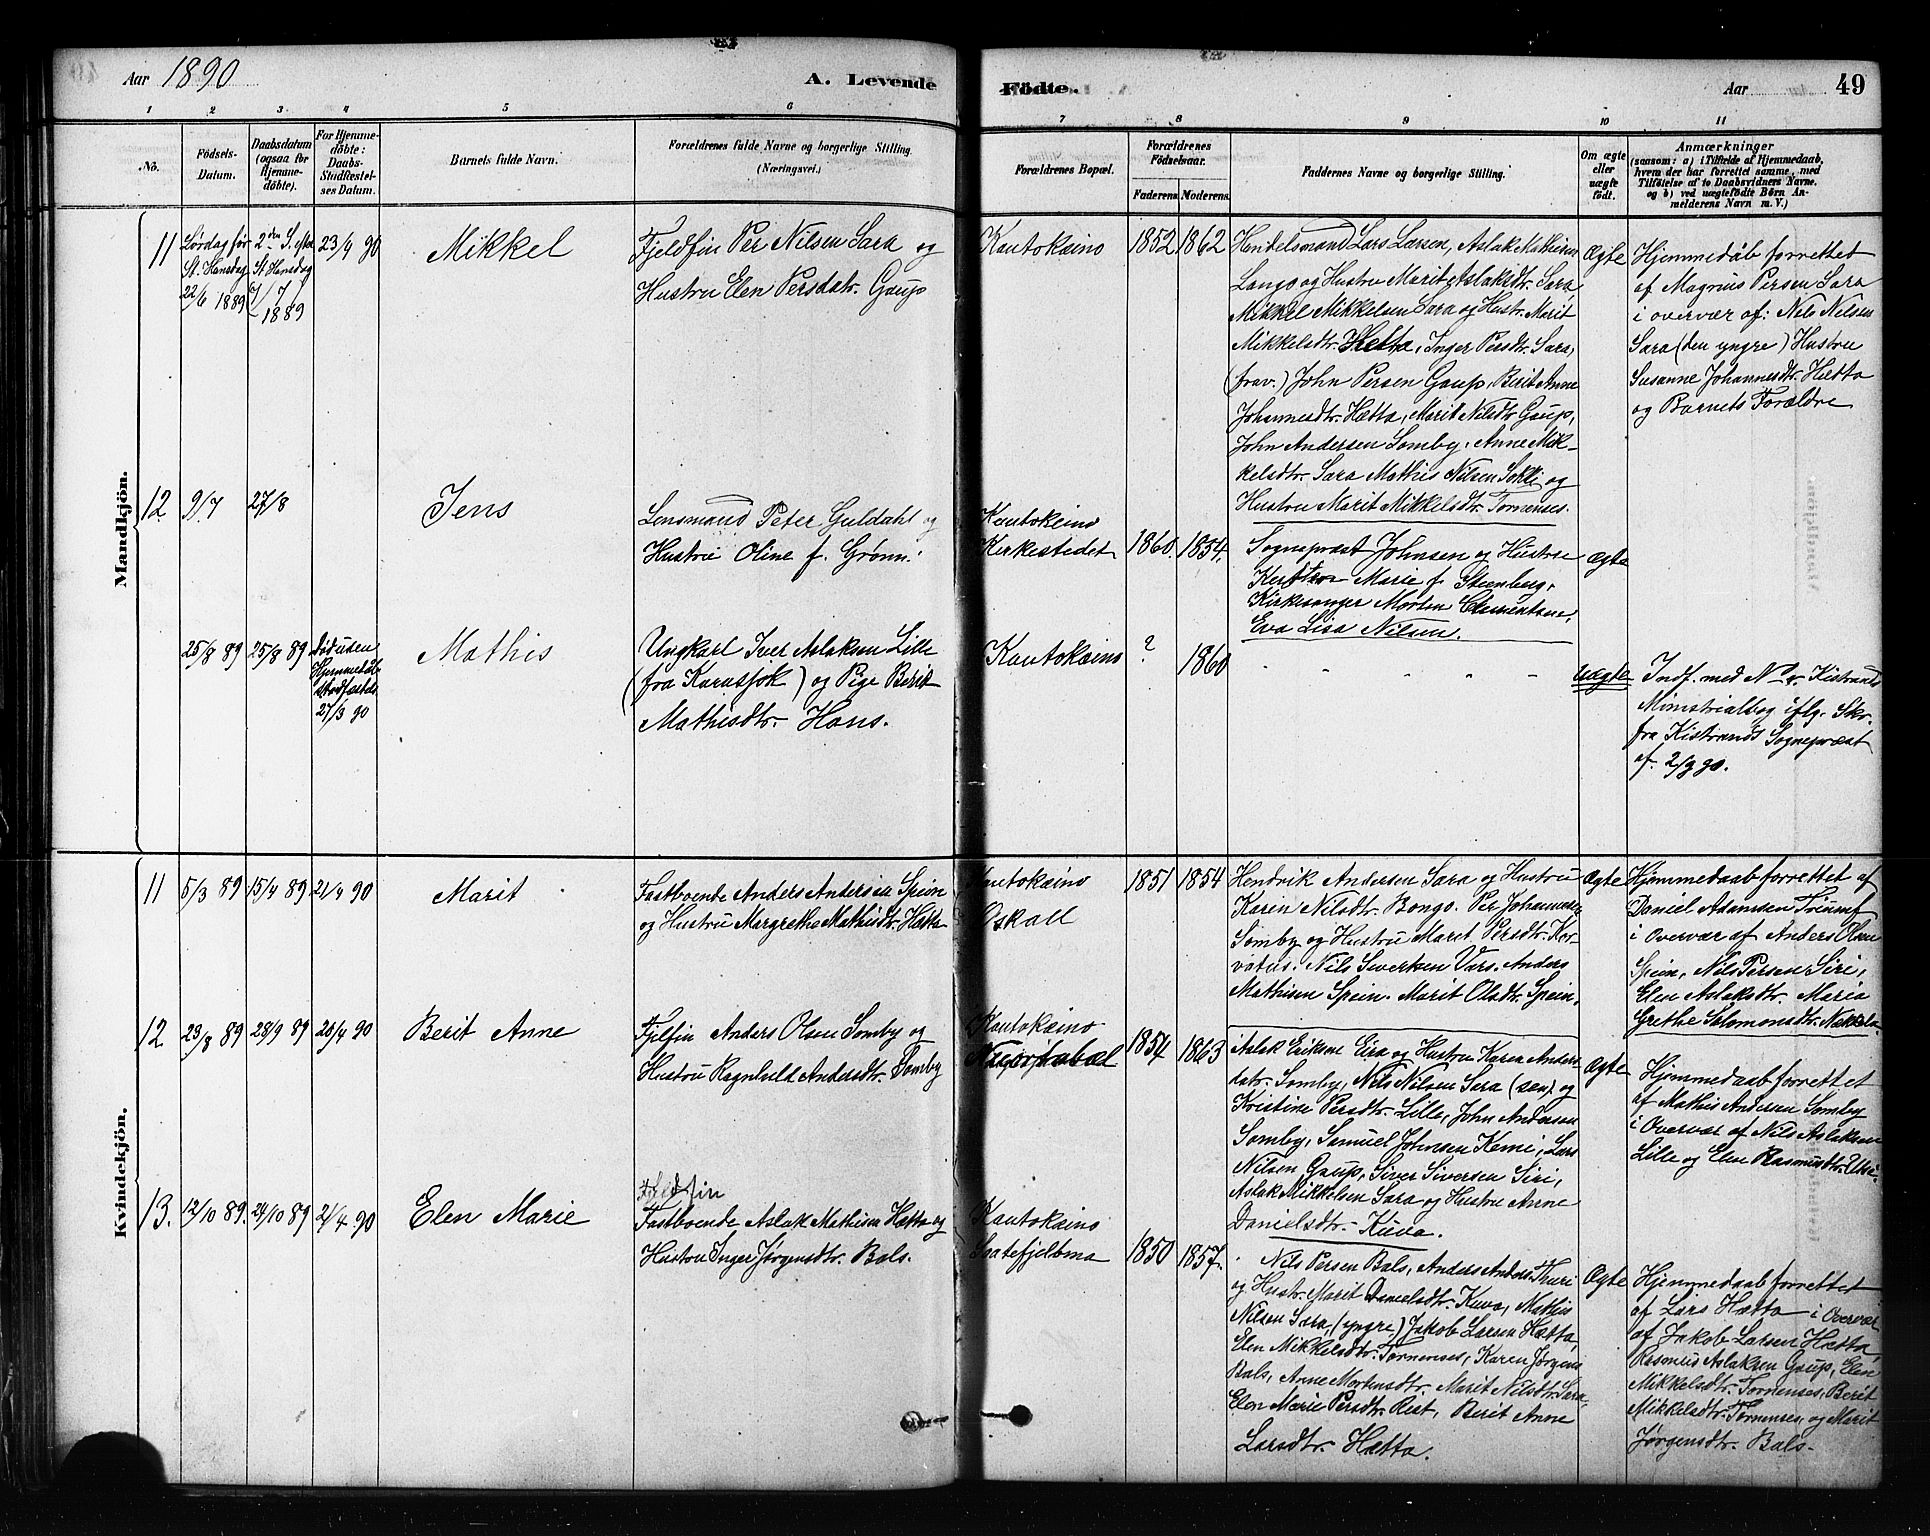 Aar 1890
A. Levende
Födte.
Aar
49
1
2
3
4
5
6
7
8
9
10
11
No.
Födsels-
Datum.
Daabsdatum
(ogsaa for
Hjemme-
döbte).
For Hjemme-
döbte:
Daabs-
Stadfæstel-
ses Datum.
Barnets fulde Navn.
Forældrenes fulde Navne og borgerlige Stilling.
(Næringsvei.)
Forældrenes Bopæl.
Forældrenes
Födselsaar.
Faderens
Moderens
Faddernes Navne og borgerlige Stilling.
Om ægte
eller
uægte
födt.
Anmærkninger
(saasom: a) i Tilfælde af Hjemmedaab,
hvem der har forrettet samme, med
Tilföielse af to Daabsvidners Navne.
og b) ved uægtefödte Börn An-
melderens Navn m. V.)
Mandkjön.
11
Lørdag før
St. Hansdag
22/6 1889
2den S. efter
St. Hansdag
7/7
1889
23/4 90
Mikkel
Fjeldfin Per Nilsen Sara og
Hustru Elen Persdatr. Gaup
Kautokeino
1852
1862
Handelsmand Lars Larsen, Aslak Mathisen
Lango og Hustru Marit Aslaksdtr. Sara,
Mikkel Mikkelsen Sara og Hustr. Marit
Mikkelsdtr. Hetta, Inger Persdtr. Sara,
(frav.) John Persen Gaup, Berit Anne
Johannesdtr. Hætta, Marit Nilsdtr. Gaup,
John Andersen Somby, Anne Mik-
kelsdtr. Sara Mathis Nilsen Sokki og
Hustru Marit Mikkelsdtr. Tornenses.
Ægte
Hjemmedåb forrettet
af Magnus Persen Sara
i overvær af: Nils Nilsen
Sara (den yngre) Hustru
Susanne Johannesdtr. Hætta
og Barnets Forældre
12
9/7
27/8
Jens
Lensmand Peter Guldahl og
Hustru Oline f. Grønn.
Kautokeino
Kirkestedet
1860.
1854.
Sognepræst Johnsen og Hustru
Marie f. Steenberg,
Kirkesanger Morten Clementsen,
Eva Lisa Nilsen.
Ægte
25/8 89
25/8 89
død uden
Hjemmedåb
stadfæstet
27/3 90
Mathis
Ungkarl Iver Aslaksen Lille
(fra Karasjok) og Pige Berit
Mathisdtr. Hans.
Kautokeino
?
1860
" " " "
uægte
Indf. med N– i Kistrands
Ministrialbog iflg. Skr.
fra Kistrands Sognepræst
af 2/9 90.
Kvindekjön.
11
5/3 89
15/4 89
21/4 90
Marit
Fastboende Anders Andersen Spein
og Hustru Margrethe Mathisdtr. Hætta
Kautokeino
Oskall
1851
1854
Hendrik Andersen Sara og Hustru
Karin Nilsdtr. Bongo. Per Johannesen
Somby og Hustru Maret Persdtr. Kor-
vatus. Nils Siverksen Vars. Anders
Mathisen Spein. Marit Olsdtr. Spein.
Ægte
Hjemmedaab forrettet af
Daniel Adamssen Triumf
i Overvær af Anders Olsen
Spein, Nils Persen Siri,
Elen Aslaksdtr. Maria
Grethe Salomonsdtr. Nækkela
12
23/8 89
28/9 89
20/4 90
Berit Anne
Fjelfin Anders Olsen Somby og
Hustru Ragnhild Andersdtr. Somby
Kautokeino
1854
1863
Aslak Eriksen Eira og Hustru Karen Anders-
datr. Somby, Nils Nilsen Sara (sen) og
Kristine Persdtr. Lille, John Andersen
Somby, Samuel Johnsen Kemi, Lars
Nilsen Gaup, Siver Siversen Siri,
Aslak Mikkelsen Sara og Hustru Anne
Danielsdtr. Kuva.
Ægte
Hjemmedaab forrettet
af Mathis Andersen Somby
i Overvær af Nils Aslaksen
Lille og Elen Rasmusdtr. Utsi
13.
12/10 89.
24/10 89
21/4 90
Elen Marie
Fjeldfin
Fastboende Aslak Mathisen Hætta og
Hustru Inger Jørgensdtr. Bals.
Kautokeino
Soatefjelbma
1850
1857.
Nils Persen Bals, Anders Anders. Thuri
og Hustr. Marit Danielsdtr. Kuva, Mathis
Nilsen Sara, (yngre) Jakob Larsen Hætta,
Elen Mikkelsdtr. Tornenses, Karen Jørgens
Bals, Anne Mortensdtr. Marit Nilsdtr. Sara,
Elen Marie Persdtr. Rist, Berit Anne
Larsdtr. Hætta.
Ægte
Hjemmedaab forrettet
af Lars Hætta i Overvær
af Jakob Larsen Hætta,
Rasmus Aslaksen Gaup, Elen
Mikkelsdtr. Tornenses, Berit
Mikkelsdtr. Tornenses, og Marit
Jørgensdtr. Bals.